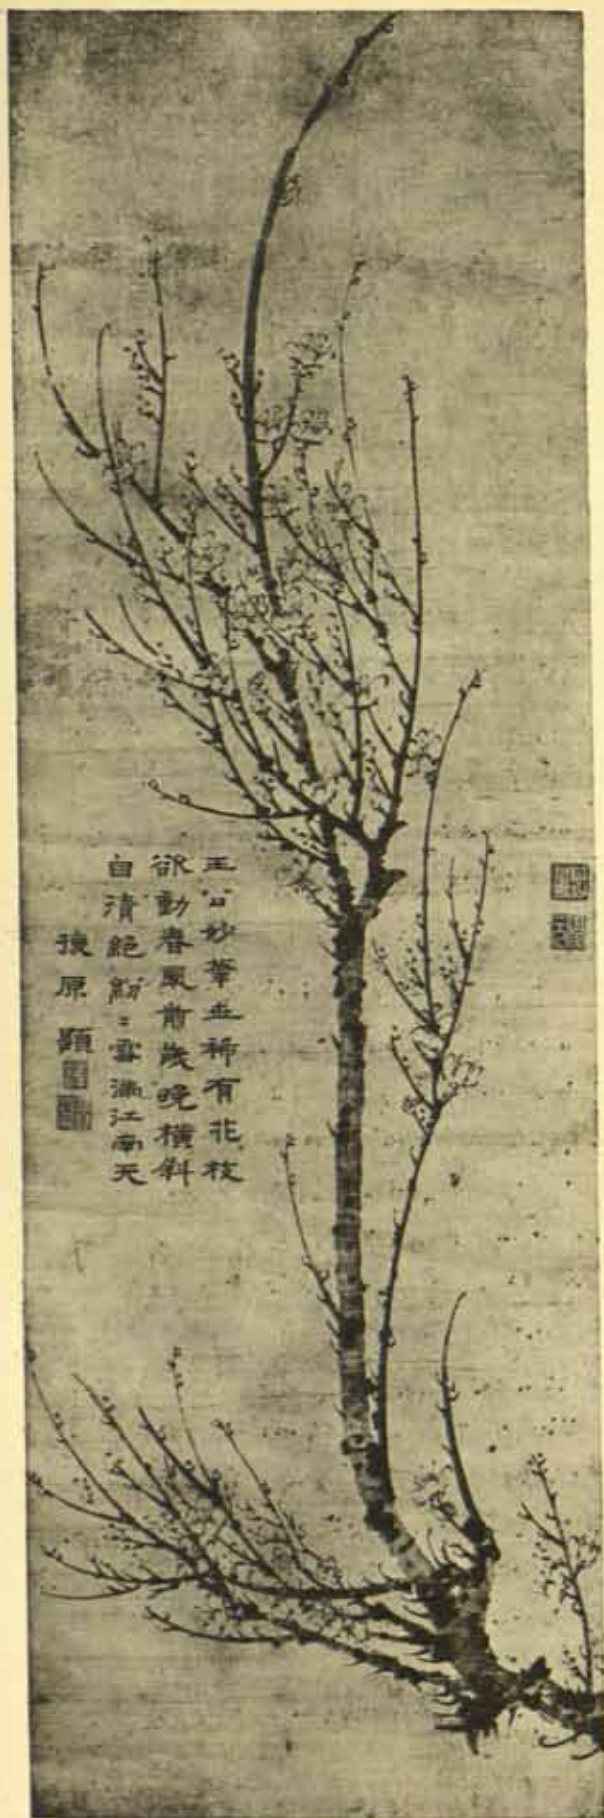 王公妙筆世稀有花枝
欲動春風前歲晚橫斜
自清絕紛〻雪滿江南天
原顯